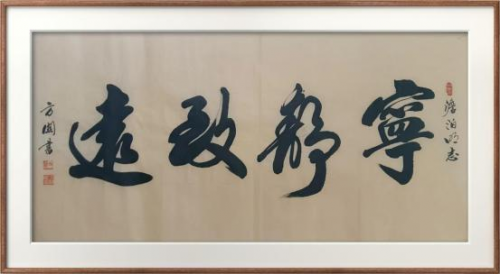 澹泊明志
寧靜致遠
方國書